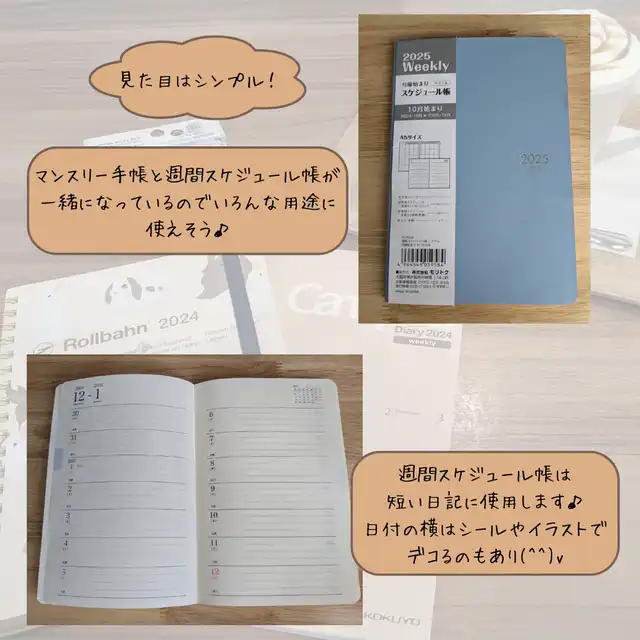 見た目はシンプル!
マンスリー手帳と週間スケジュール帳が
一緒になっているのでいろんな用途に
使えそう♪
2025
Weekly
月曜始まり
スケジュール帳
10月始まり
A5サイズ
2025
株式会社 モリトク
Rollbahn 2024
Diary 2024
weekly
2
3
12-1
30
31
1
2
3
4
5
6
7
8
9
10
11
12
週間スケジュール帳は
短い日記に使用します♪
日付の横はシールやイラストで
デコるのもあり(^^)v
KOKUYO